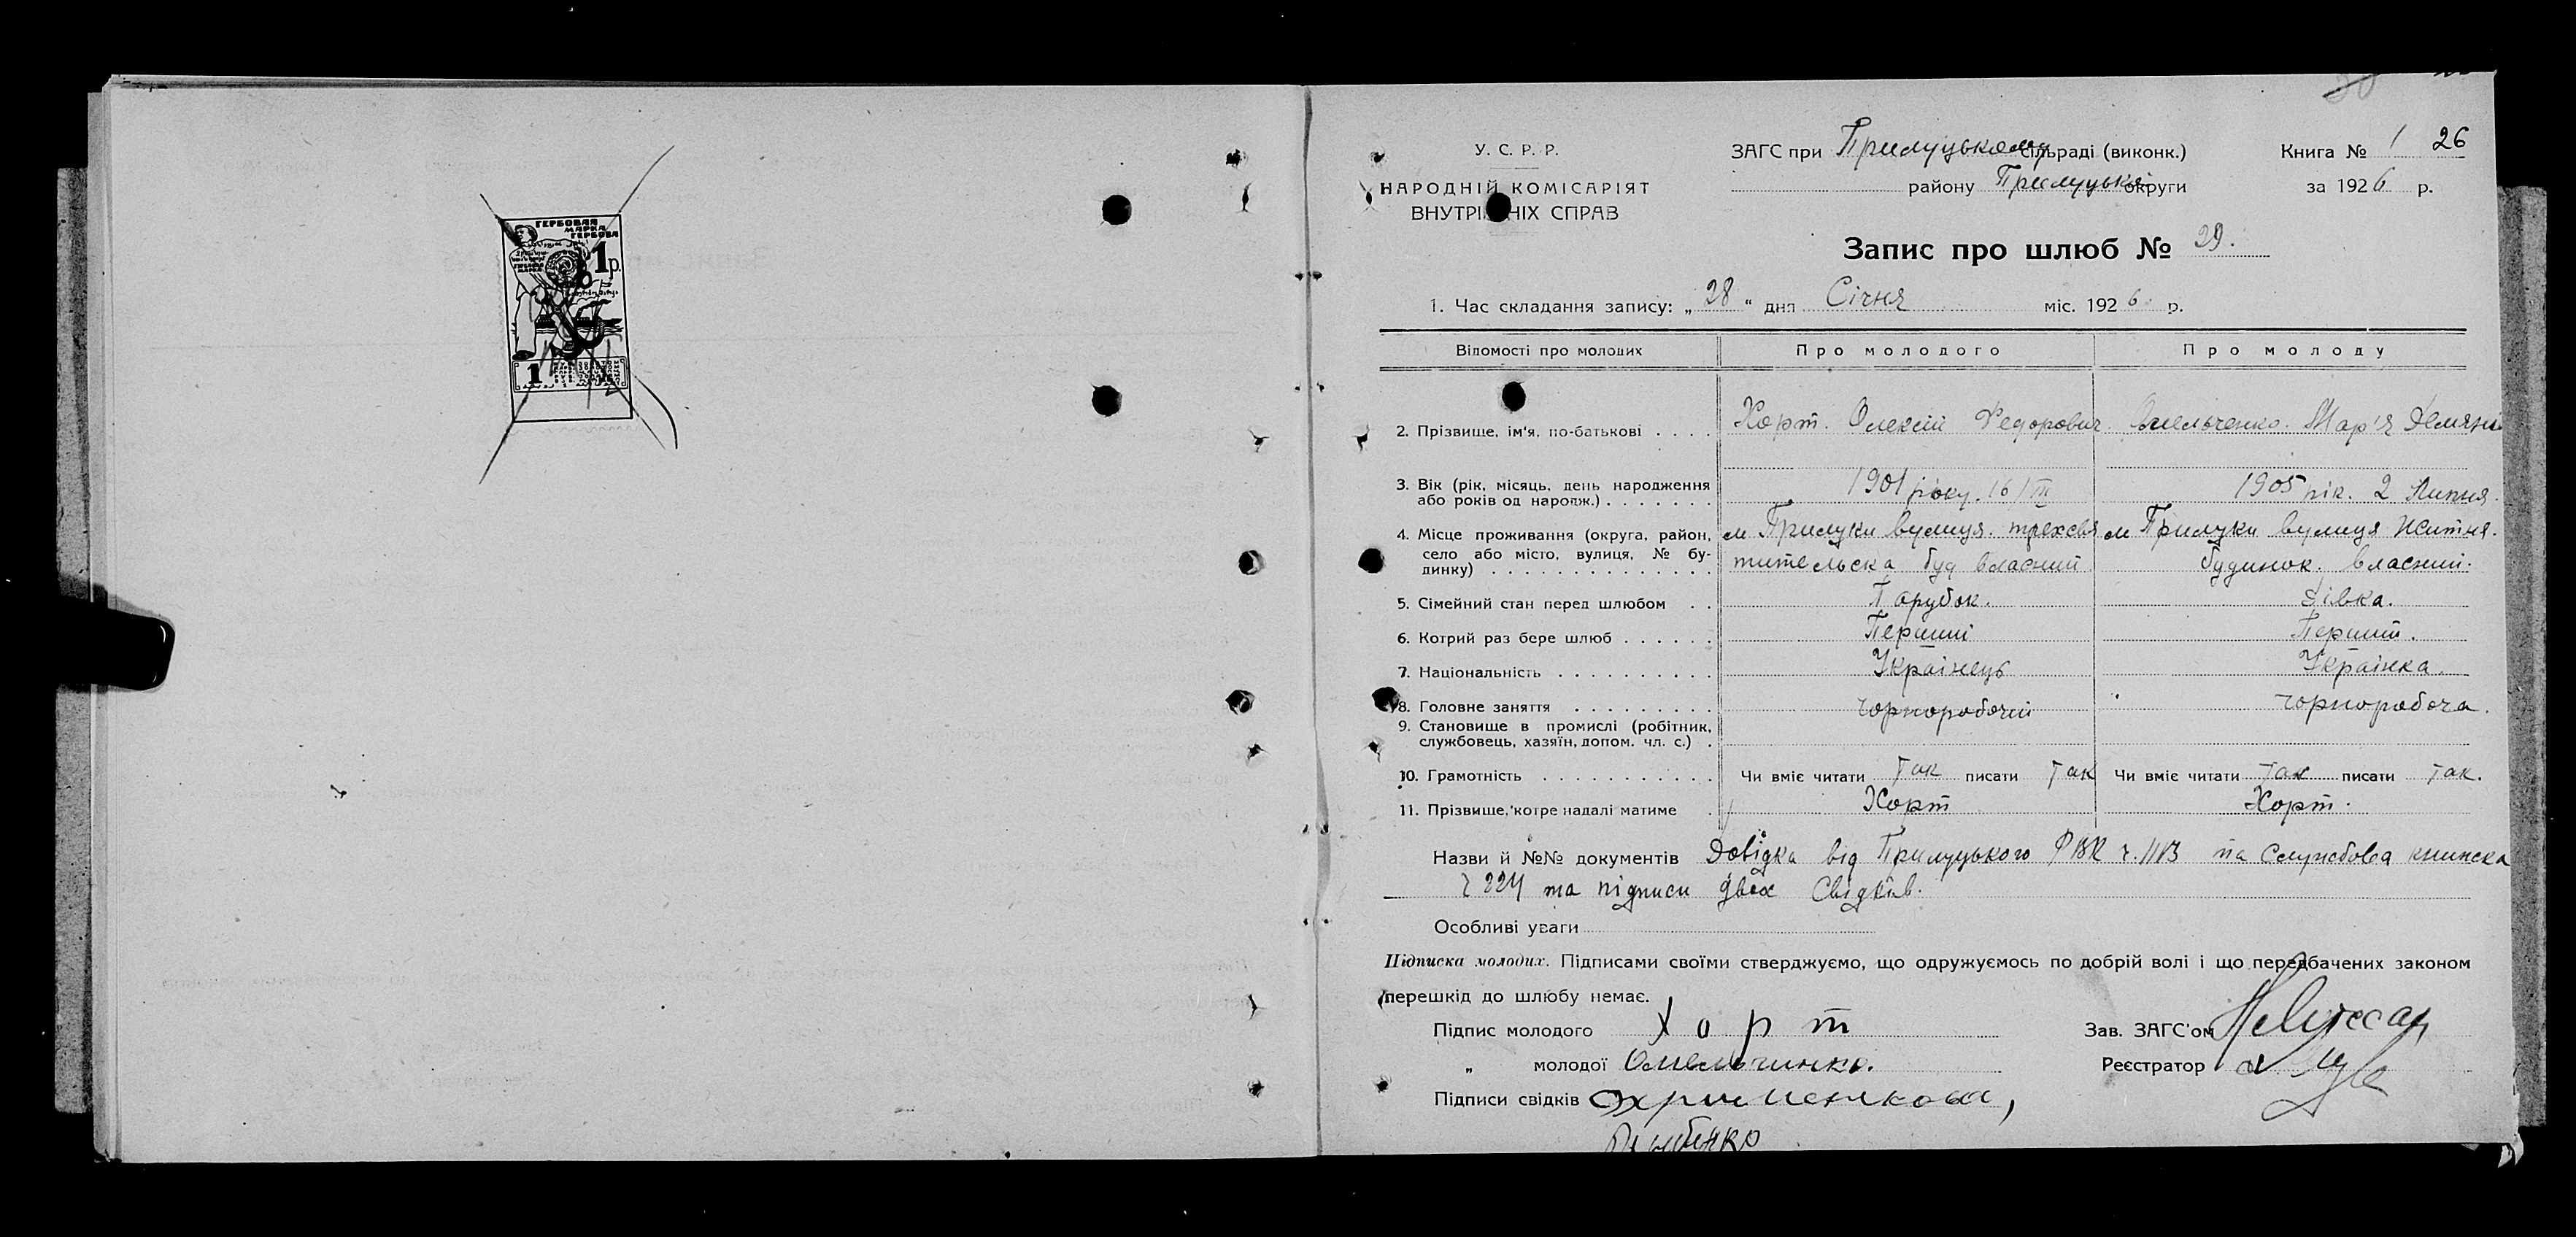 ГЕРБОВАЯ
МАРКА
ГЕРБОВА
1 р.
1
26
У. С. Р. Р.
НАРОДНІЙ КОМІСАРІЯТ
ВНУТРІШНІХ СПРАВ
ЗАГС при Прилуцькому сільраді (виконк.)
району Прилуцької округи
Книга № 1
за 1926 р.
Запис про шлюб № 29.
1. Час складання запису: „28“ дня Січня міс. 1926 р.
Відомості про молодих Про молодого Про молоду
2. Прізвище, ім'я, по-батькові . . . . Хорт. Олексій Федорович Омельченко. Мар'я Демяні
3. Вік (рік, місяць, день народження
або років од народж.) . . . . . . . 1901 року. 16/III 1905 рік. 2 Липня.
4. Місце проживання (округа, район, м Прилуки вулиця. трехсвя м Прилуки вулиця Житня.
село або місто, вулиця, № бу-
динку) . . . . . . . . . . . . . . тительска буд власний будинок. власний.
5. Сімейний стан перед шлюбом . . Парубок. Дівка.
6. Котрий раз бере шлюб . . . . . . Перший Перший.
7. Національність . . . . . . . . . . Українець Українка.
8. Головне заняття . . . . . . . . . Чорноробочий Чорноробоча.
9. Становище в промислі (робітник,
службовець, хазяїн, допом. чл. с.) .
10. Грамотність . . . . . . . . . . . Чи вміє читати Так писати Так Чи вміє читати Так писати Так.
11. Прізвище, котре надалі матиме . Хорт Хорт.
Назви й №№ документів Довідка від Прилуцького РВК ч. та Службова книжка
ч 224 та підписи двох Свідків.
Особливі уваги
Підписка молодих. Підписами своїми стверджуємо, що одружуємось по добрій волі і що передбачених законом
перешкід до шлюбу немає.
Підпис молодого Хорт Зав. ЗАГС'ом
„ молодої Омельчинко. Реєстратор
Підписи свідків